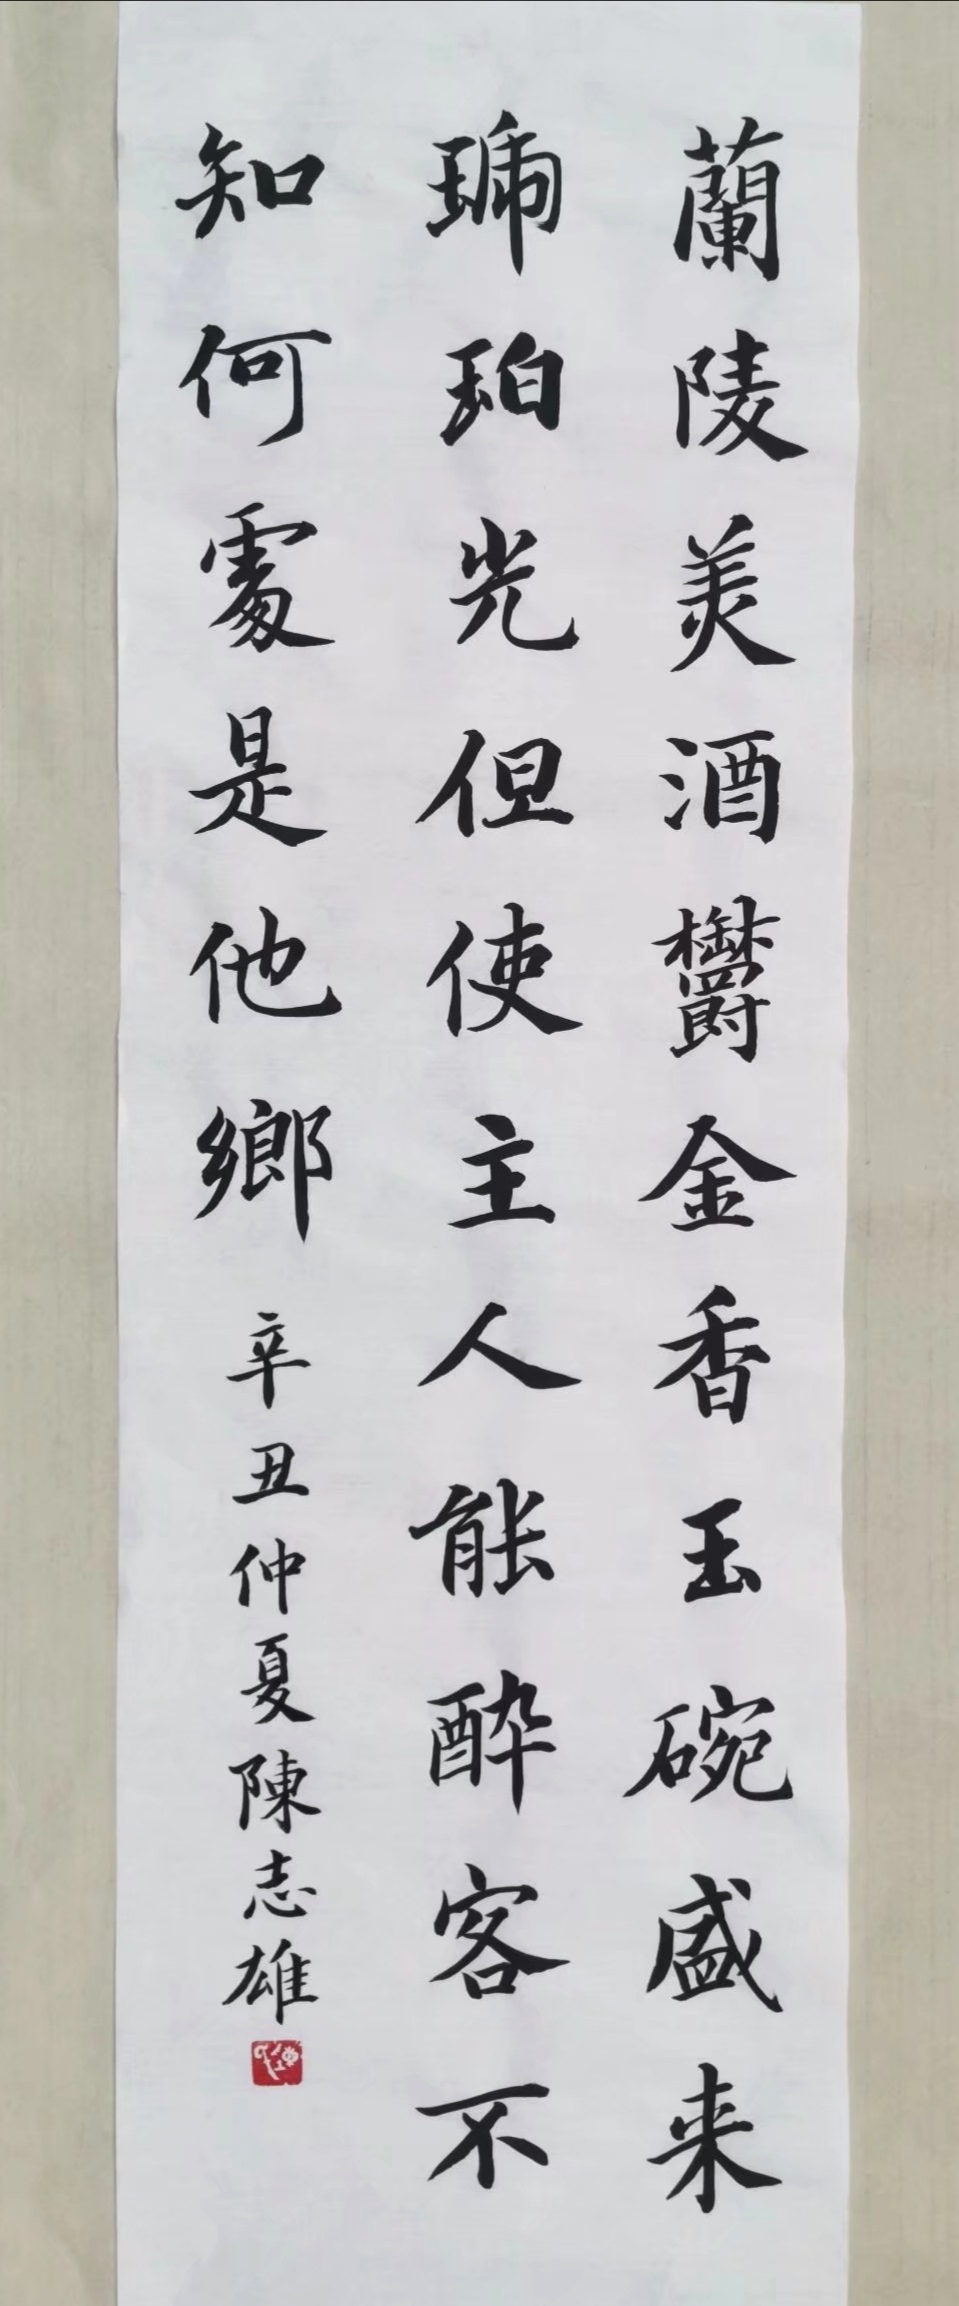 蘭陵美酒欝金香玉碗盛来
琥珀光但使主人能醉客不
知何處是他鄉 辛丑仲夏陳志雄